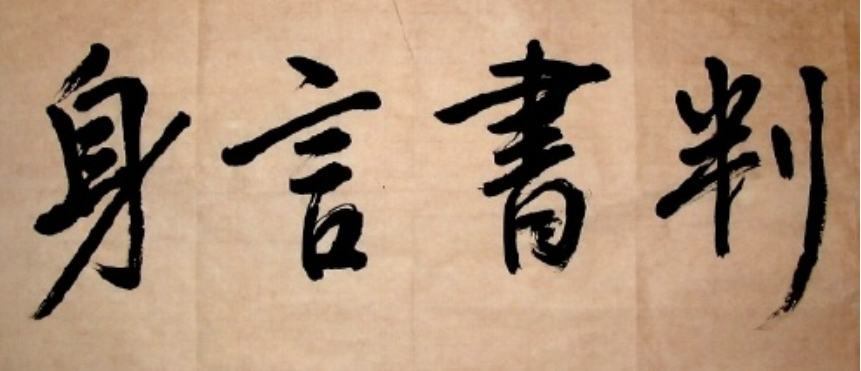 身言書判